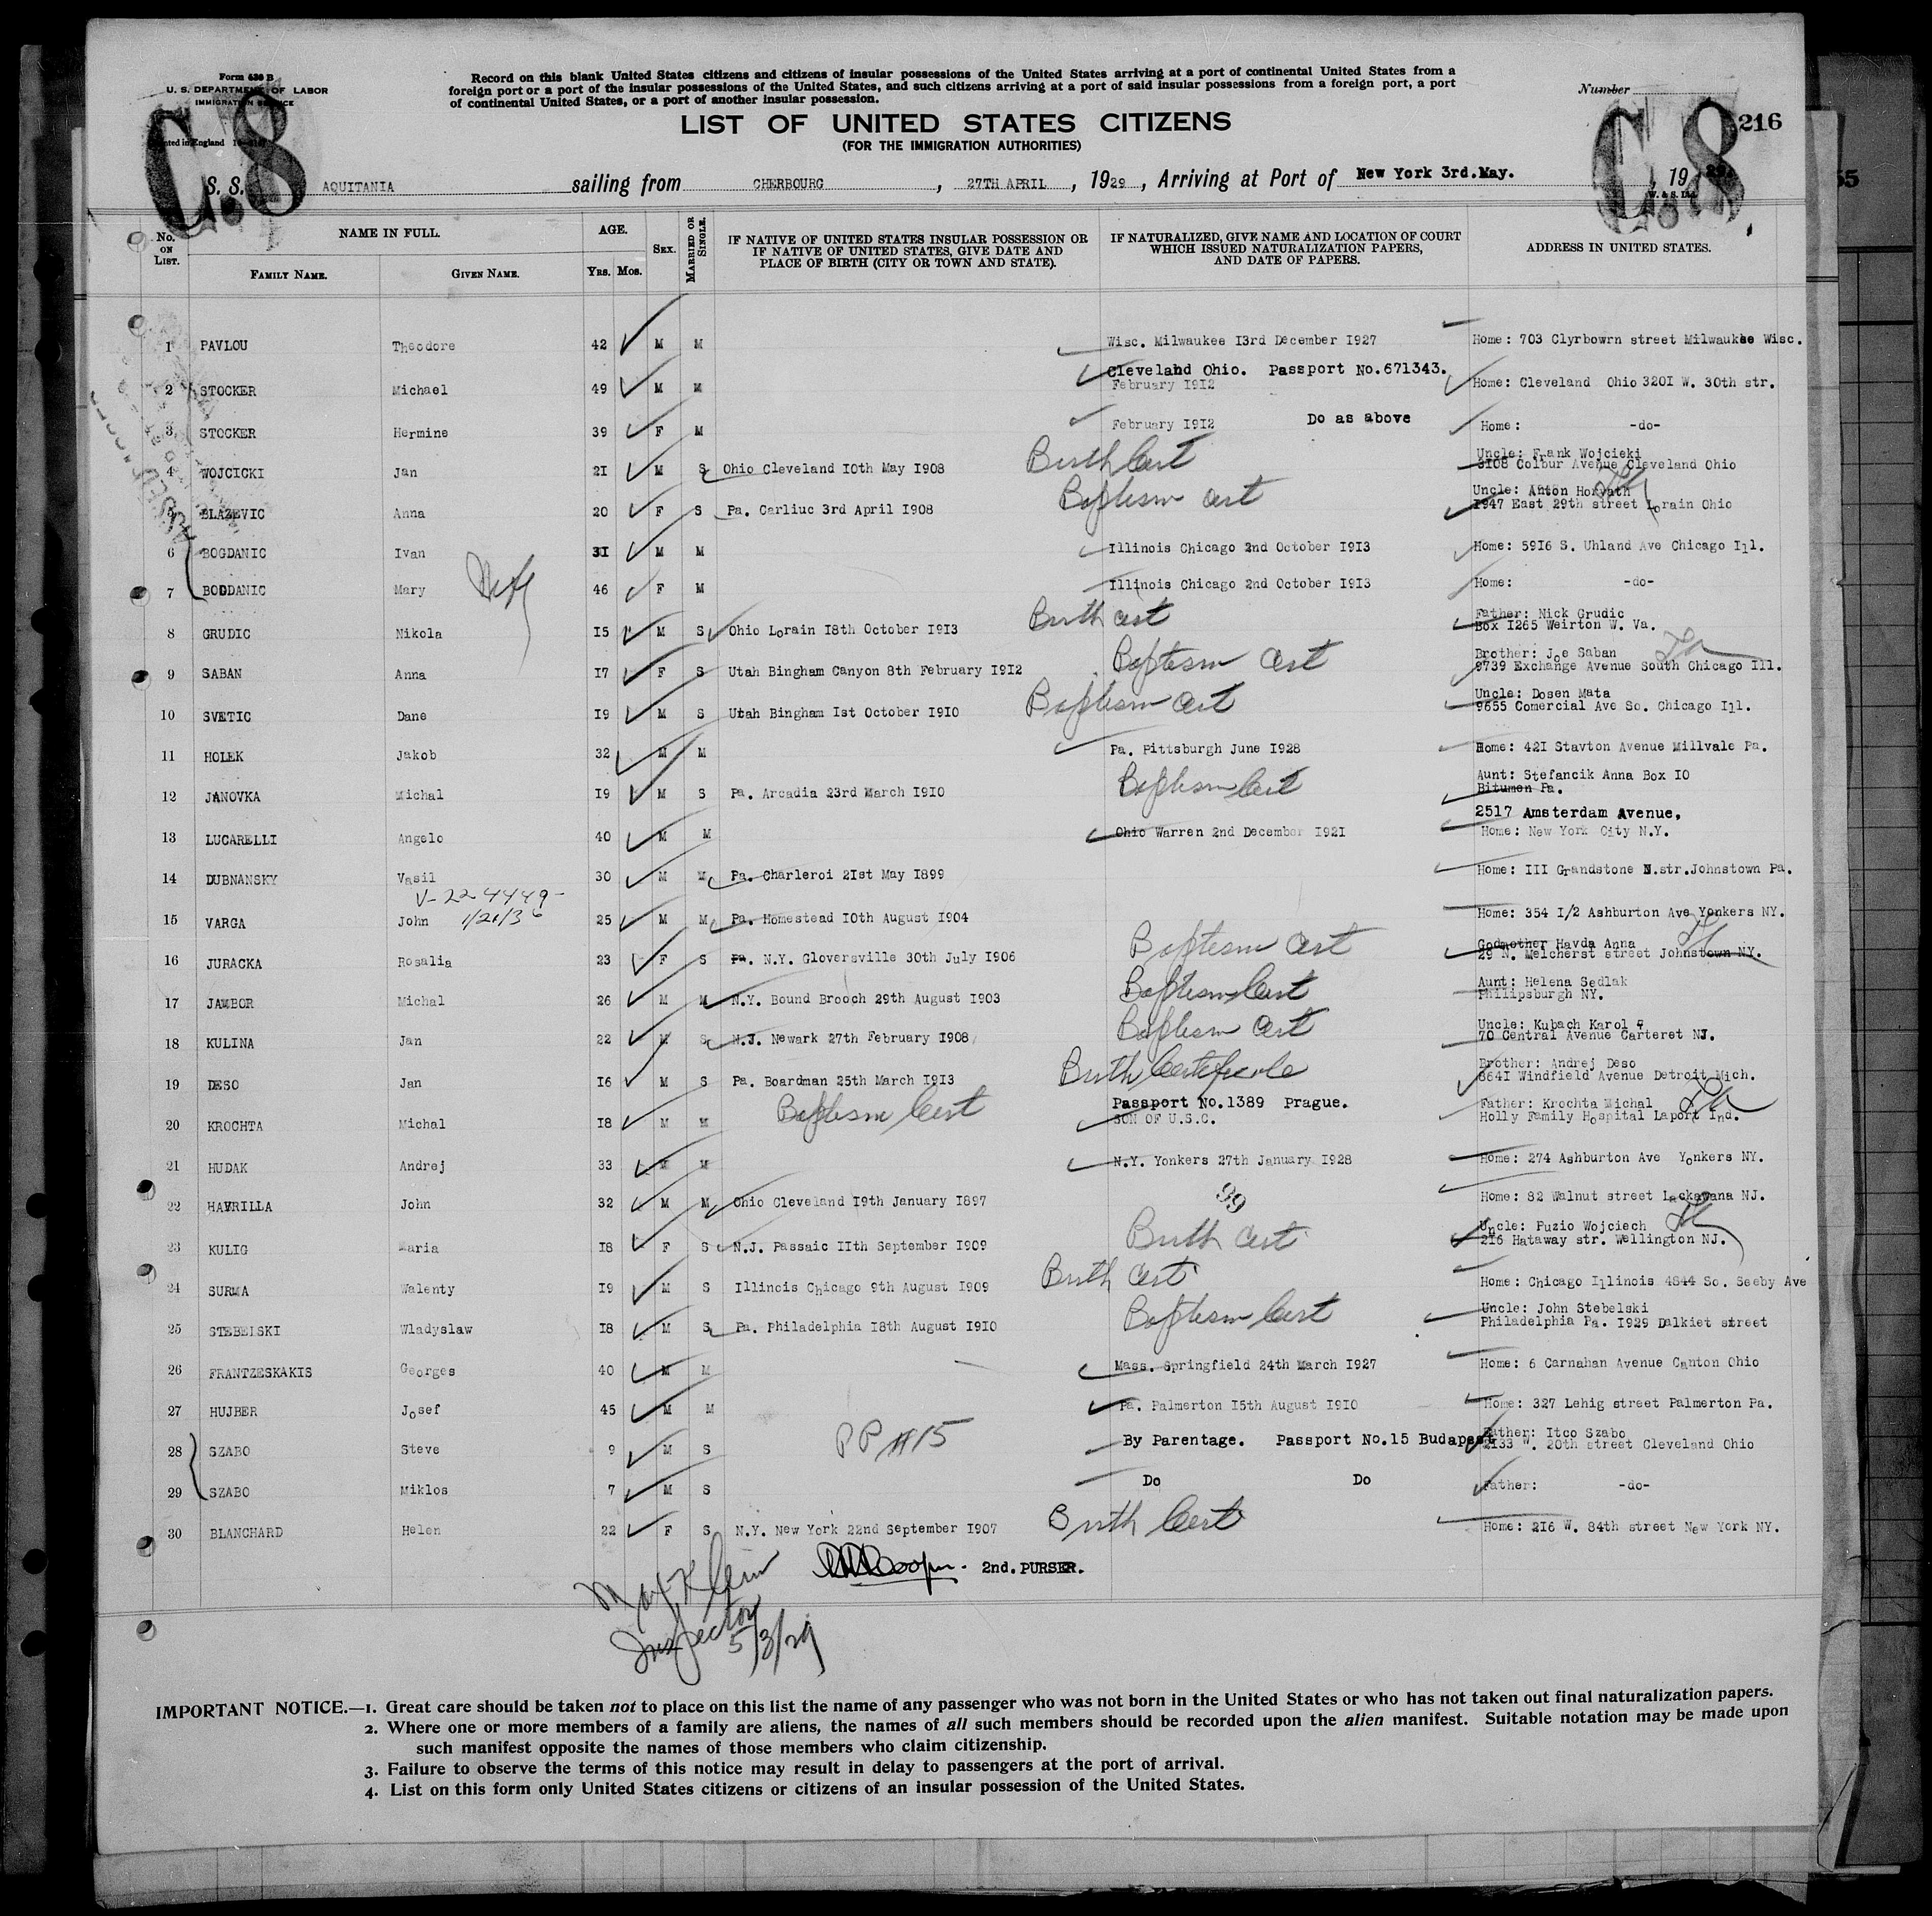 Form 630 B
U. S. DEPARTMENT OF LABOR
IMMIGRATION SERVICE
Printed in England
Record on this blank United States citizens and citizens of insular possessions of the United States arriving at a port of continental United States from a
foreign port or a port of the insular possessions of the United States, and such citizens arriving at a port of said insular possessions from a foreign port, a port
of continental United States, or a port of another insular possession.
Number
C.8
C.8
216
LIST OF UNITED STATES CITIZENS
(FOR THE IMMIGRATION AUTHORITIES)
S. S. AQUITANIA sailing from CHERBOURG, 27TH APRIL, 1929, Arriving at Port of New York 3rd.May. , 1929.
No. ON LIST. NAME IN FULL. FAMILY NAME. GIVEN NAME. AGE. YRS. MOS. SEX. MARRIED OR SINGLE. IF NATIVE OF UNITED STATES INSULAR POSSESSION OR IF NATIVE OF UNITED STATES, GIVE DATE AND PLACE OF BIRTH (CITY OR TOWN AND STATE). IF NATURALIZED, GIVE NAME AND LOCATION OF COURT WHICH ISSUED NATURALIZATION PAPERS, AND DATE OF PAPERS. ADDRESS IN UNITED STATES.
1 PAVLOU Theodore 42 M M Wisc. Milwaukee I3rd December I927 Home: 703 Clyrbowrn street Milwaukee Wisc.
2 STOCKER Michael 49 M M Cleveland Ohio. Passport No.671343. February I9I2 Home: Cleveland Ohio 320I W. 30th str.
3 STOCKER Hermine 39 F M February I9I2 Do as above Home: -do-
4 WOJCICKI Jan 2I M S Ohio Cleveland I0th May I908 Birth Cert Uncle: Frank Wojcieki 3I08 Colbur Avenue Cleveland Ohio
5 BLAZEVIC Anna 20 F S Pa. Carliuc 3rd April I908 Baptism Cert Uncle: Anton Horvath I947 East 29th street Lorain Ohio
6 BOGDANIC Ivan 3I M M Illinois Chicago 2nd October I9I3 Home: 59I6 S. Uhland Ave Chicago Ill.
7 BOGDANIC Mary 46 F M Illinois Chicago 2nd October I9I3 Home: -do-
8 GRUDIC Nikola I5 M S Ohio Lorain I8th October I9I3 Birth Cert Father: Nick Grudic Box I265 Weirton W. Va.
9 SABAN Anna I7 F S Utah Bingham Canyon 8th February I9I2 Baptism Cert Brother: Joe Saban 9739 Exchange Avenue South Chicago Ill.
10 SVETIC Dane I9 M S Utah Bingham Ist October I9I0 Baptism Cert Uncle: Dosen Mata 9655 Comercial Ave So. Chicago Ill.
11 HOLEK Jakob 32 M M Pa. Pittsburgh June I928 Home: 42I Stavton Avenue Millvale Pa.
12 JANOVKA Michal I9 M S Pa. Arcadia 23rd March I9I0 Baptism Cert Aunt: Stefancik Anna Box I0 Bitumen Pa.
13 LUCARELLI Angelo 40 M M Ohio Warren 2nd December I92I 2517 Amsterdam Avenue, Home: New York City N.Y.
14 DUBNANSKY Vasil 30 M M Pa. Charleroi 2Ist May I899 Home: III Grandstone N.str.Johnstown Pa.
V-224449-
15 VARGA John 1/21/36 25 M M Pa. Homestead I0th August I904 Home: 354 I/2 Ashburton Ave Yonkers NY.
16 JURACKA Rosalia 23 F S Pa. N.Y. Gloversville 30th July I906 Baptism Cert Godmother Havda Anna 29 N. Melcherst street Johnstown NY.
17 JAMBOR Michal 26 M M N.Y. Bound Brooch 29th August I903 Baptism Cert Aunt: Helena Sedlak Philipsburgh NY.
18 KULINA Jan 22 M S N.J. Newark 27th February I908 Baptism Cert Uncle: Kubach Karol 70 Central Avenue Carteret NJ.
19 DESO Jan I6 M S Pa. Boardman 25th March I9I3 Birth Certificate Brother: Andrej Deso 864I Windfield Avenue Detroit Mich.
20 KROCHTA Michal I8 M M Baptism Cert Passport No.1389 Prague. SON OF U.S.C. Father: Krochta Michal Holly Family Hospital Laport Ind.
21 HUDAK Andrej 33 M M N.Y. Yonkers 27th January I928 Home: 274 Ashburton Ave Yonkers NY.
22 HAVRILLA John 32 M M Ohio Cleveland I9th January I897 99 Home: 82 Walnut street Lackawana NJ.
23 KULIG Maria I8 F S N.J. Passaic IIth September I909 Birth Cert Uncle: Puzio Wojciech 2I6 Hataway str. Wellington NJ.
24 SURMA Walenty I9 M S Illinois Chicago 9th August I909 Birth Cert Home: Chicago Illinois 4844 So. Seeby Ave
25 STEBELSKI Wladyslaw I8 M S Pa. Philadelphia I8th August I9I0 Baptism Cert Uncle: John Stebelski Philadelphia Pa. I929 Dalkiet street
26 FRANTZESKAKIS Georges 40 M M Mass. Springfield 24th March I927 Home: 6 Carnahan Avenue Canton Ohio
27 HUJBER Josef 45 M M Pa. Palmerton I5th August I9I0 Home: 327 Lehig street Palmerton Pa.
28 SZABO Steve 9 M S PP #15 By Parentage. Passport No.15 Budapest Father: Itco Szabo 2I33 W. 20th street Cleveland Ohio
29 SZABO Miklos 7 M S Do Do Father: -do-
30 BLANCHARD Helen 22 F S N.Y. New York 22nd September I907 Birth Cert Home: 2I6 W. 84th street New York NY.
2nd. PURSER.
Max Klein
Inspector
5/3/29
IMPORTANT NOTICE.—1. Great care should be taken not to place on this list the name of any passenger who was not born in the United States or who has not taken out final naturalization papers.
2. Where one or more members of a family are aliens, the names of all such members should be recorded upon the alien manifest. Suitable notation may be made upon
such manifest opposite the names of those members who claim citizenship.
3. Failure to observe the terms of this notice may result in delay to passengers at the port of arrival.
4. List on this form only United States citizens or citizens of an insular possession of the United States.